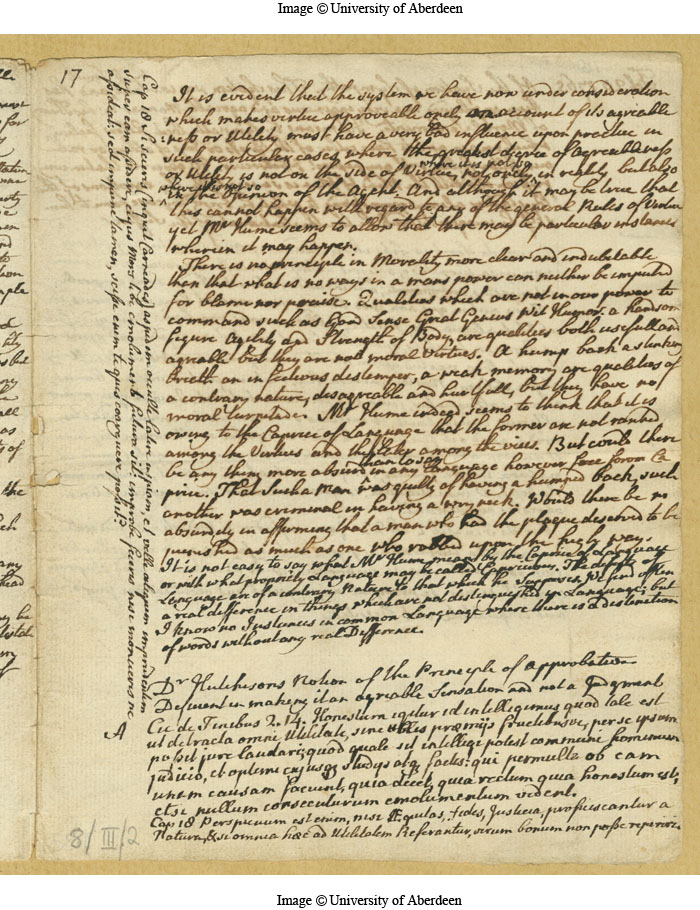 Image © University of Aberdeen
17
It is evident that the system we have now under consideration
which makes virtue approveable onely on account of its agreable
ness or Utility must have a very bad influence upon practice in
such particular cases, where the greatest degree of Agreableness
or Utility is not on the side of Virtue, not onely in reality but also
where it is not so
where this is not so
in the Opinion of the Agent. And although it may be true that
this cannot happen with regard to any of the general Rules of Virtue
yet Mr Hume seems to allow that there may be particular instances
wherein it may happen.
There is no principle in Morality more clear and indubitable
then that what is no ways in a mans power can neither be imputed
for blame nor praise. Qualities which are not in our power to
command such as Good Sense Great Genius Wit Humor, a handsom
figure Agility and Strength of Body, are qualities both usefull and
agreable but they are not moral virtues. A hump back a stinking
breath an infectious distemper, a weak memory are qualities of
a contrary nature, disagreable and hurtfull, but they have no
moral turpitude. Mr Hume indeed seems to think that it is
owing to the Caprice of Language that the former are not ranked
among the Virtues and the latter among the vices. But could there
be any thing more absurd in any Language however free from Ca
than to say
price. That such a man was guilty of having a humped back, such
another was criminal in having a wry neck. Would there be no
absurdity in affirming that a man who had the plague deserved to be
punished as much as one who robbed upon the high way.
It is not easy to say what Mr Hume means by the Caprice of Language
or with what propriety Language may be called Capricious. The defects of
Language are of a contrary Nature to that which he supposes. We find often
a real difference in things which are not distinguished in Language; but
I know no Instances in common Language where there is a distinction
of words without any real Difference.
Dr Hutchisons Notion of the Principle of Approbation
Defluent in making it an agreable Sensation and not a Judgment
Cic de Finibus 2. 14. Honestum igitur id intelligimus quod tale est
ut detracta omni Utilitate, sine ullis præmijs fructibusve, per se ipsum
possit jure laudari; quod quale sit intelligi potest communi hominum
judicio, et optimi cujusq studijs atq factis: qui permulta ob eam
unam causam faciunt, quia decet, quia rectum quia honestum est,
etsi nullum consecuturum emolumentum vident.
Cap 18 Perspicuum est enim, nisi Æquitas, fides, Justicia, proficiscantur a
Natura, & si omnia hæc ad Utilitatem Referantur, virum bonum non posse reperiri.
A
Cap 18 Si scieris (inquit Carneades) aspidem occulte latere uspiam, et velle aliquem imprudentem
super eam assidere, cujus Mors tibi emolumento futura sit: improbe feceris nisi monueris ne
assideat: sed impune tamen, scisse enim te quis coarguere possit?
8/III/2
Image © University of Aberdeen